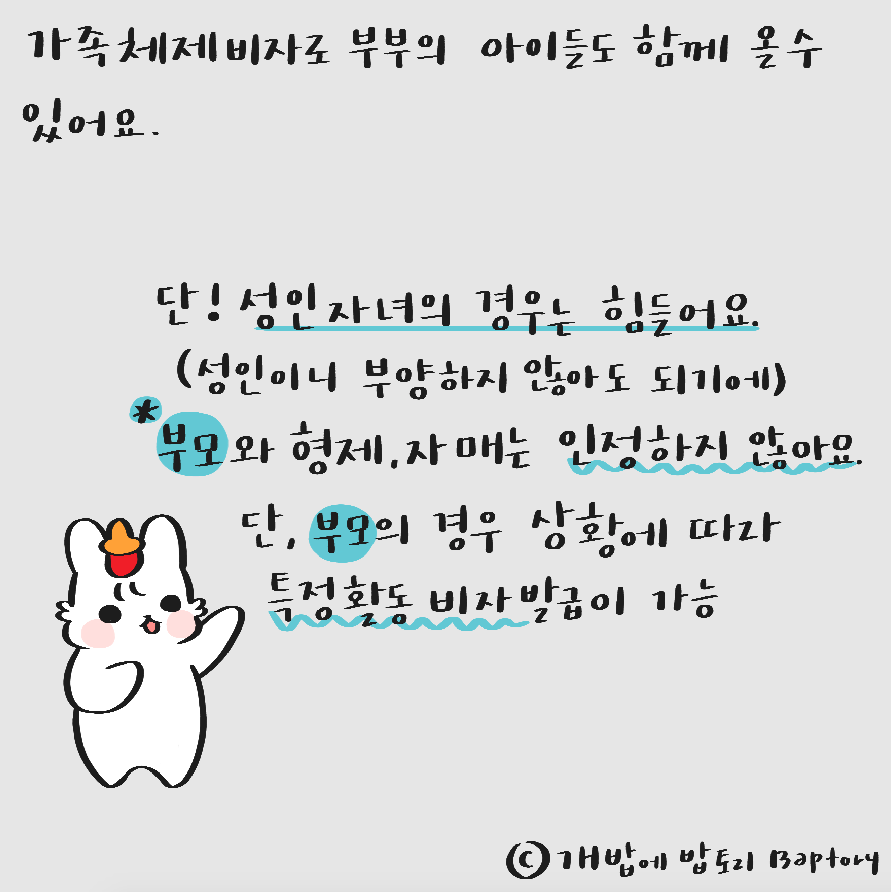 가족체제비자로 부부의 아이들도 함께 올수
있어요.
단! 성인자녀의 경우는 힘들어요.
(성인이니 부양하지 않아도 되기에)
*
부모와 형제,자매는 인정하지 않아요.
단, 부모의 경우 상황에 따라
특정활동 비자발급이 가능
©개밥에 밥토리 Baptory